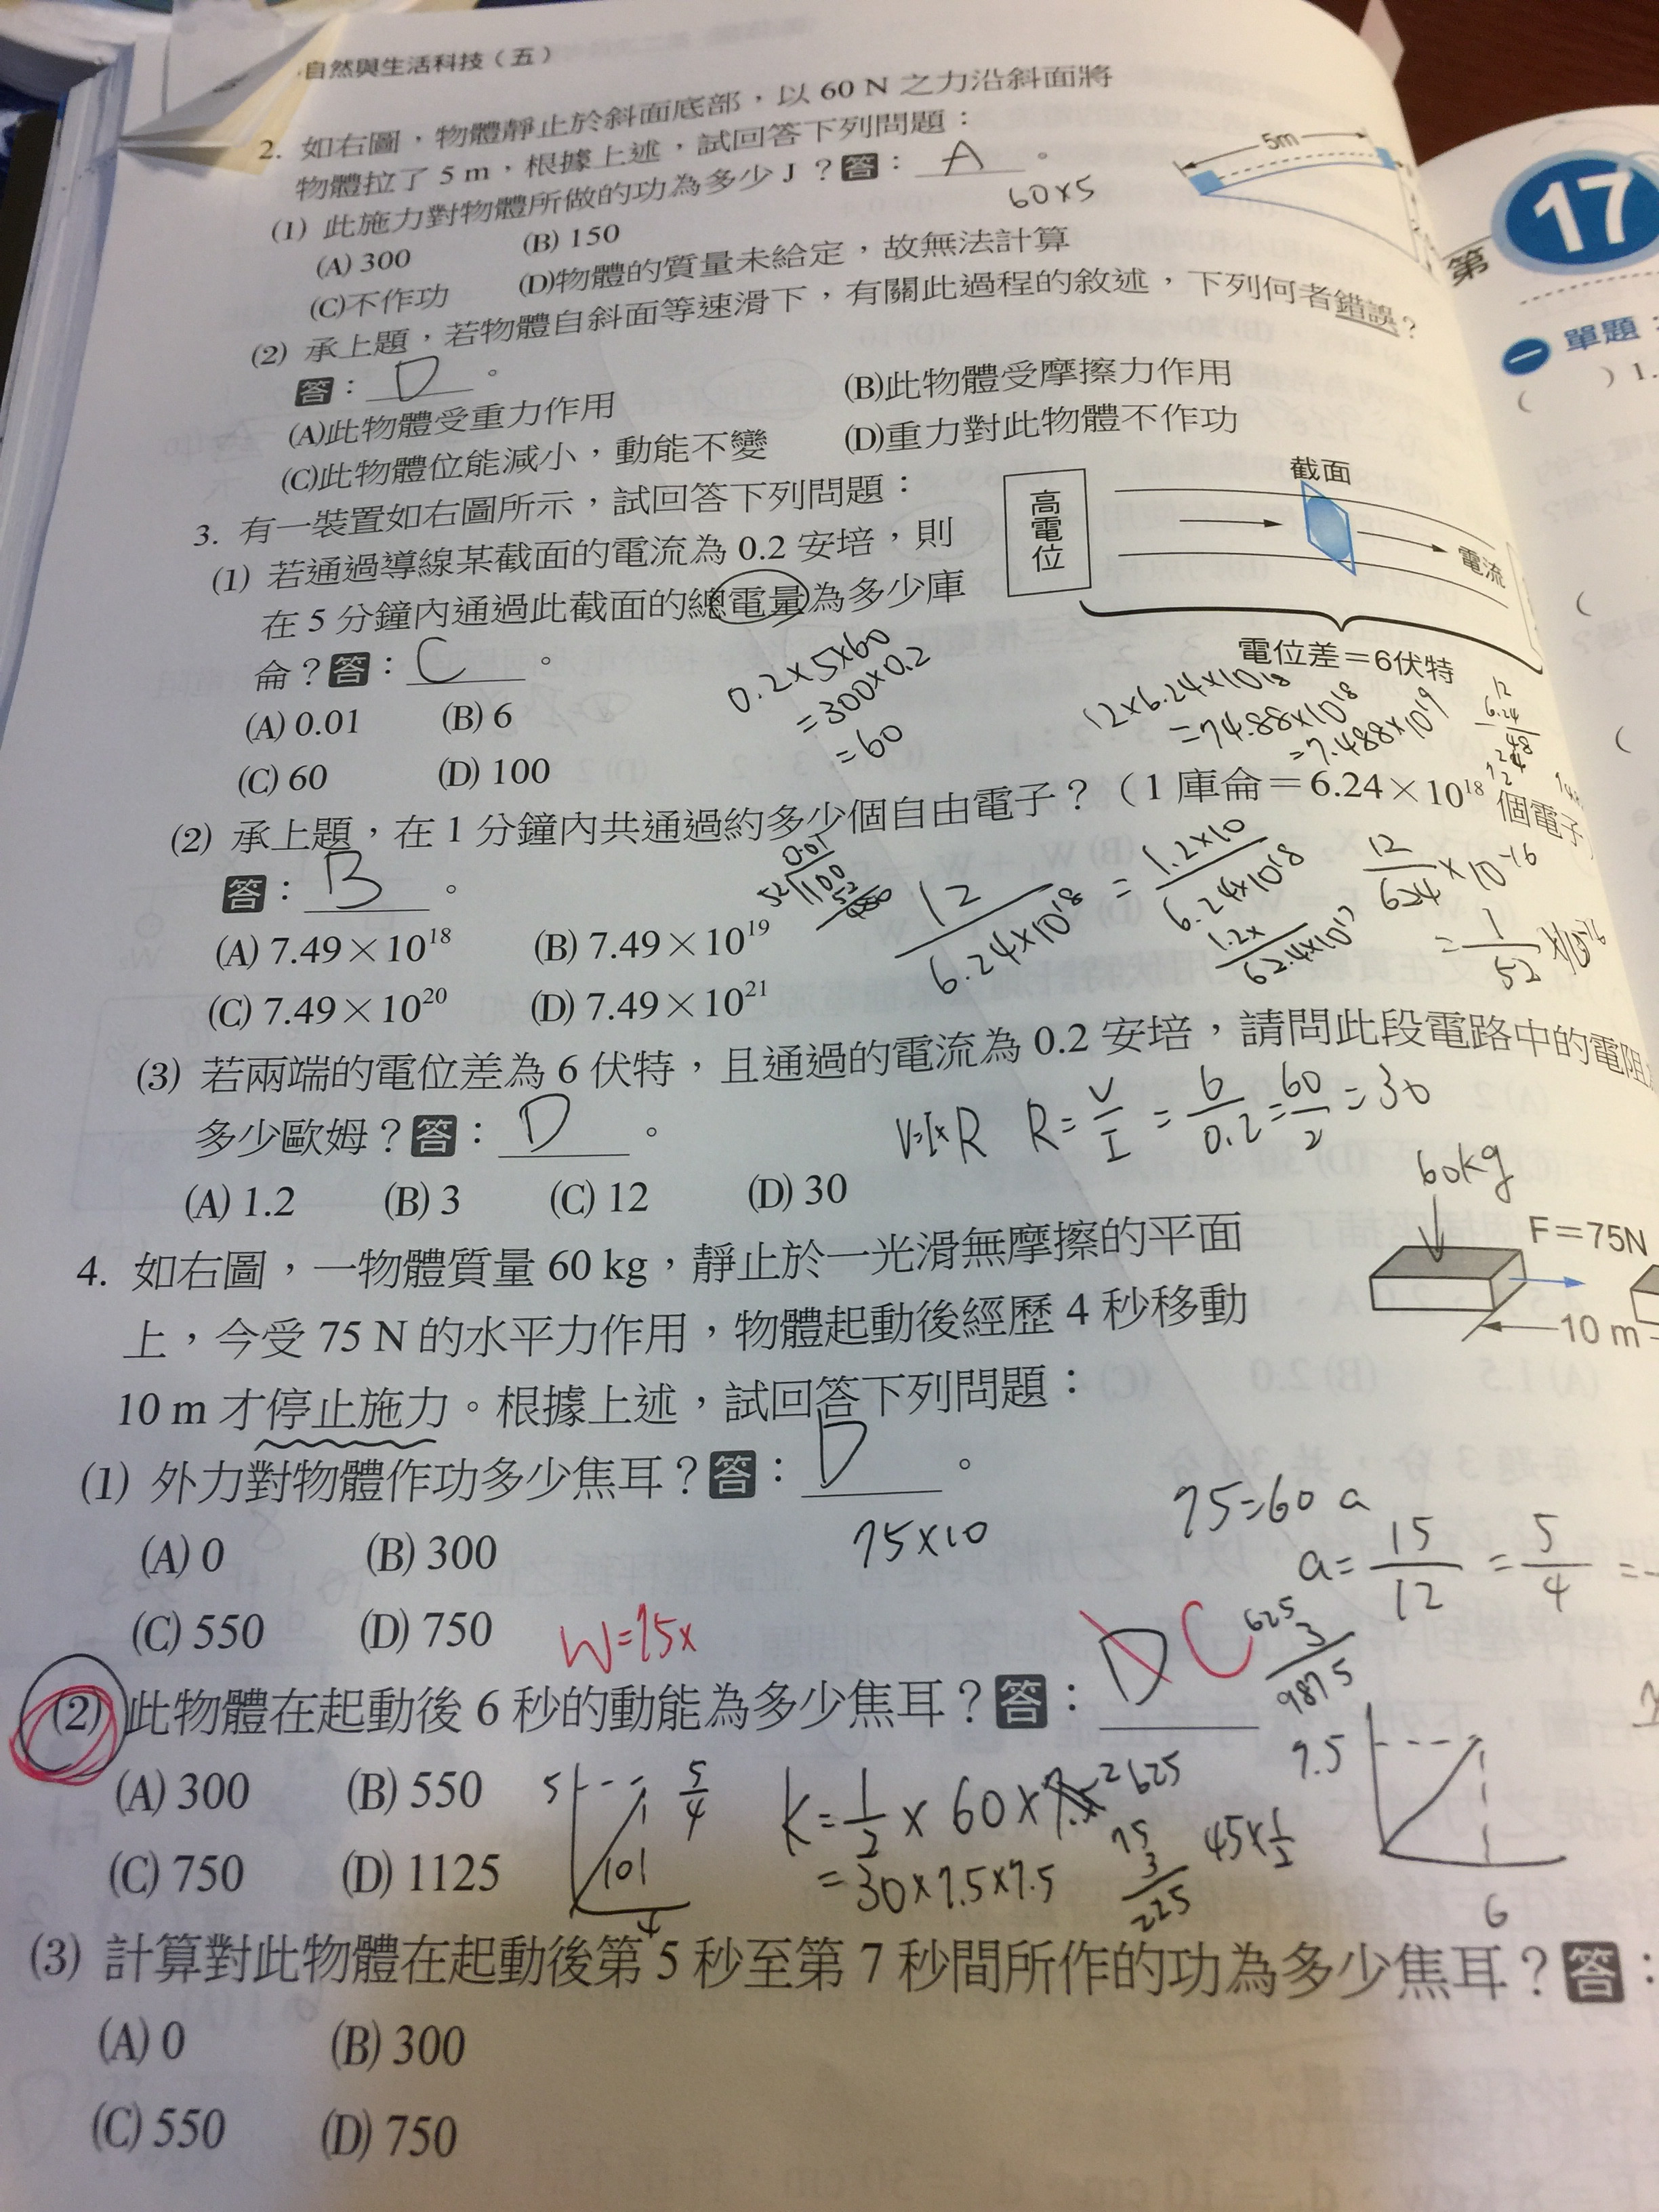 自然與生活科技（五）
2. 如右圖，物體靜止於斜面底部，以 60 N 之力沿斜面將
物體拉了 5 m，根據上述，試回答下列問題：
(1) 此施力對物體所做的功為多少 J？答：A。
60×5
(A) 300 (B) 150
(C)不作功 (D)物體的質量未給定，故無法計算
(2) 承上題，若物體自斜面等速滑下，有關此過程的敘述，下列何者錯誤？
答：D。
(A)此物體受重力作用 (B)此物體受摩擦力作用
(C)此物體位能減小，動能不變 (D)重力對此物體不作功
5m
3. 有一裝置如右圖所示，試回答下列問題：
(1) 若通過導線某截面的電流為 0.2 安培，則
在 5 分鐘內通過此截面的總電量為多少庫
侖？答：C。
(A) 0.01 (B) 6
(C) 60 (D) 100
0.2×5×60
=300×0.2
=60
高電位
截面
電流
電位差＝6伏特
12×6.24×10¹⁸
=74.88×10¹⁸
=7.488×10¹⁹
(2) 承上題，在 1 分鐘內共通過約多少個自由電子？（1 庫侖＝6.24×10¹⁸ 個電子
答：B。
(A) 7.49×10¹⁸ (B) 7.49×10¹⁹
(C) 7.49×10²⁰ (D) 7.49×10²¹
12/6.24×10¹⁸ = 1.2×10/6.24×10¹⁸
12/624×10⁻¹⁶
(3) 若兩端的電位差為 6 伏特，且通過的電流為 0.2 安培，請問此段電路中的電阻
多少歐姆？答：D。
V=I×R R=V/I=6/0.2=60/2=30
(A) 1.2 (B) 3 (C) 12 (D) 30
4. 如右圖，一物體質量 60 kg，靜止於一光滑無摩擦的平面
上，今受 75 N 的水平力作用，物體起動後經歷 4 秒移動
10 m 才停止施力。根據上述，試回答下列問題：
60kg
F＝75N
10 m
(1) 外力對物體作功多少焦耳？答：D。
75×10
(A) 0 (B) 300
(C) 550 (D) 750
75=60 a
a=15/12=5/4=
W=75×
(2) 此物體在起動後 6 秒的動能為多少焦耳？答：D C
(A) 300 (B) 550
(C) 750 (D) 1125
5
5/4
10
K=1/2×60×7.5²
=30×7.5×7.5
45×1/2
7.5
6
(3) 計算對此物體在起動後第 5 秒至第 7 秒間所作的功為多少焦耳？答：
(A) 0 (B) 300
(C) 550 (D) 750
第 17
一 單題
( ) 1.